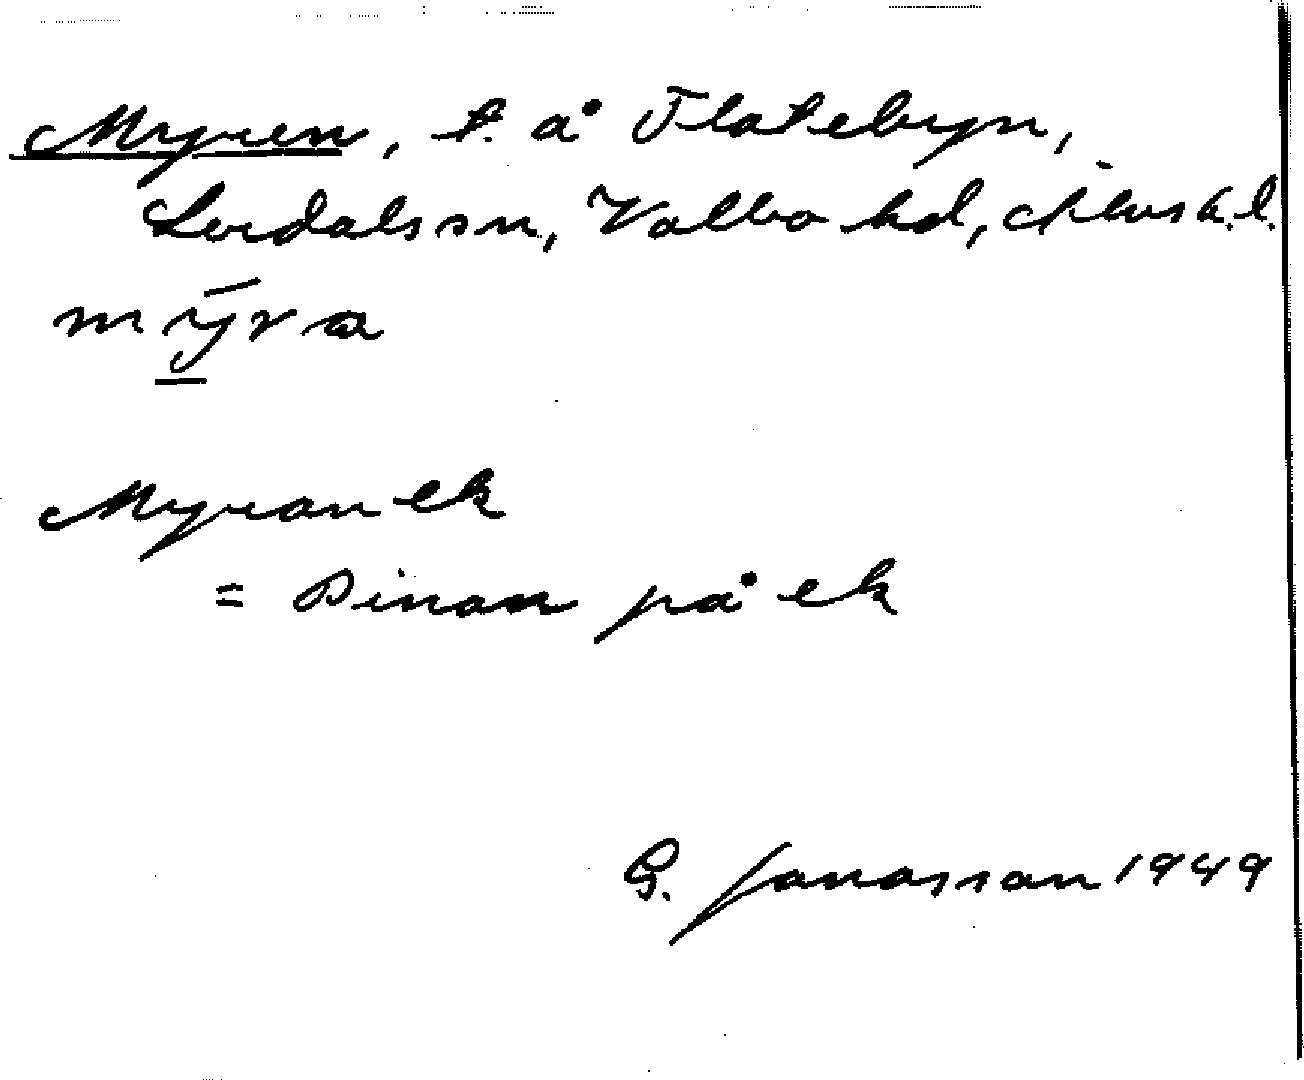 Myren, t. å Flatebyn,
Lerdals sn, Valbo hd, Älvsb.l.
mȳra
Myran ek
= Sinan på ek
G. Jonasson 1949